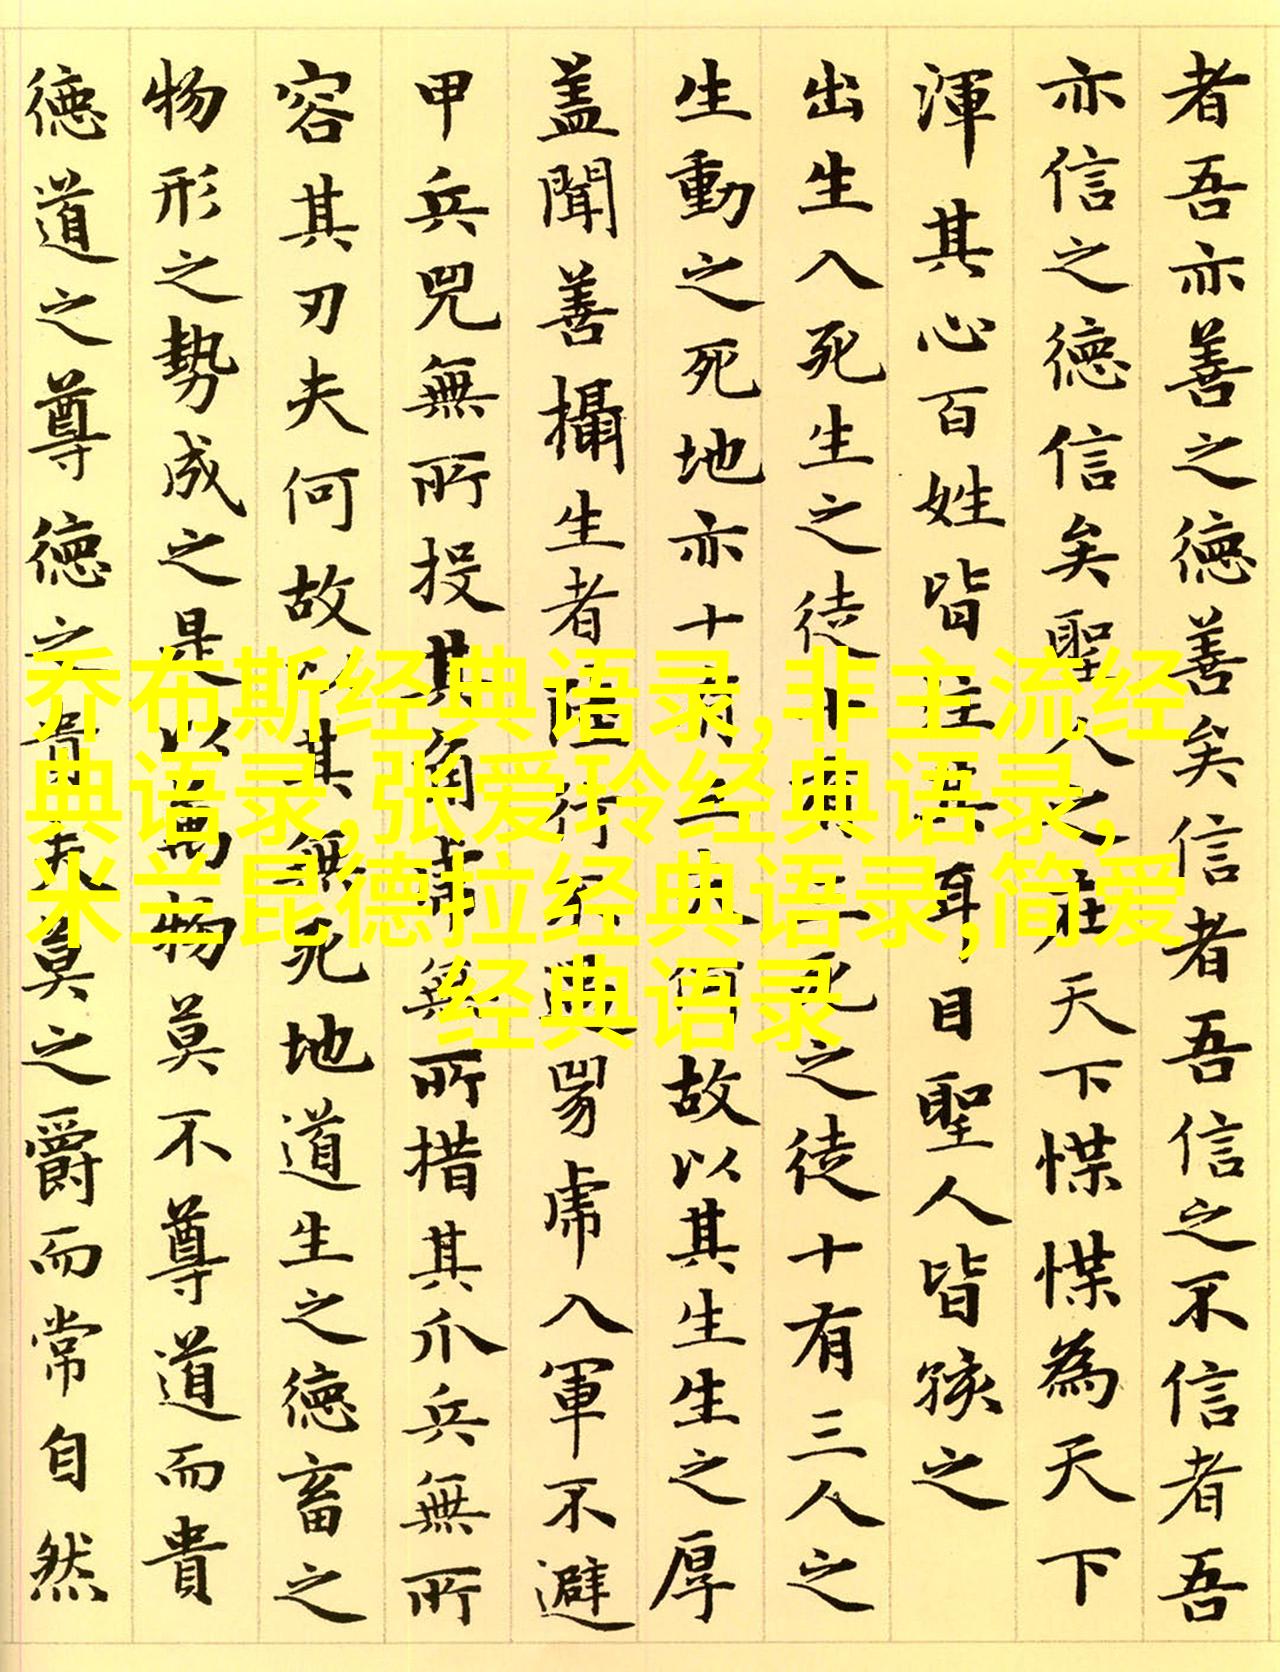 者吾亦善之德善矣信者吾信之不信者吾
亦信之德信矣聖人之在天下惵惵為天下
渾其心百姓皆注其耳目聖人皆孩之
出生入死生之徒十有三死之徒十有三人之
生動之死地亦十有三夫何故以其生生之厚
蓋聞善攝生者陸行不遇兕虎入軍不避
甲兵兕無所投其角虎無所措其爪兵無所
容其刃夫何故以其無死地道生之德畜之
物形之勢成之是以萬物莫不尊道而貴
德道之尊德之貴夫莫之爵而常自然
乔布斯经典语录,非主流经
典语录,张爱玲经典语录,
米兰昆德拉经典语录,简爱
经典语录